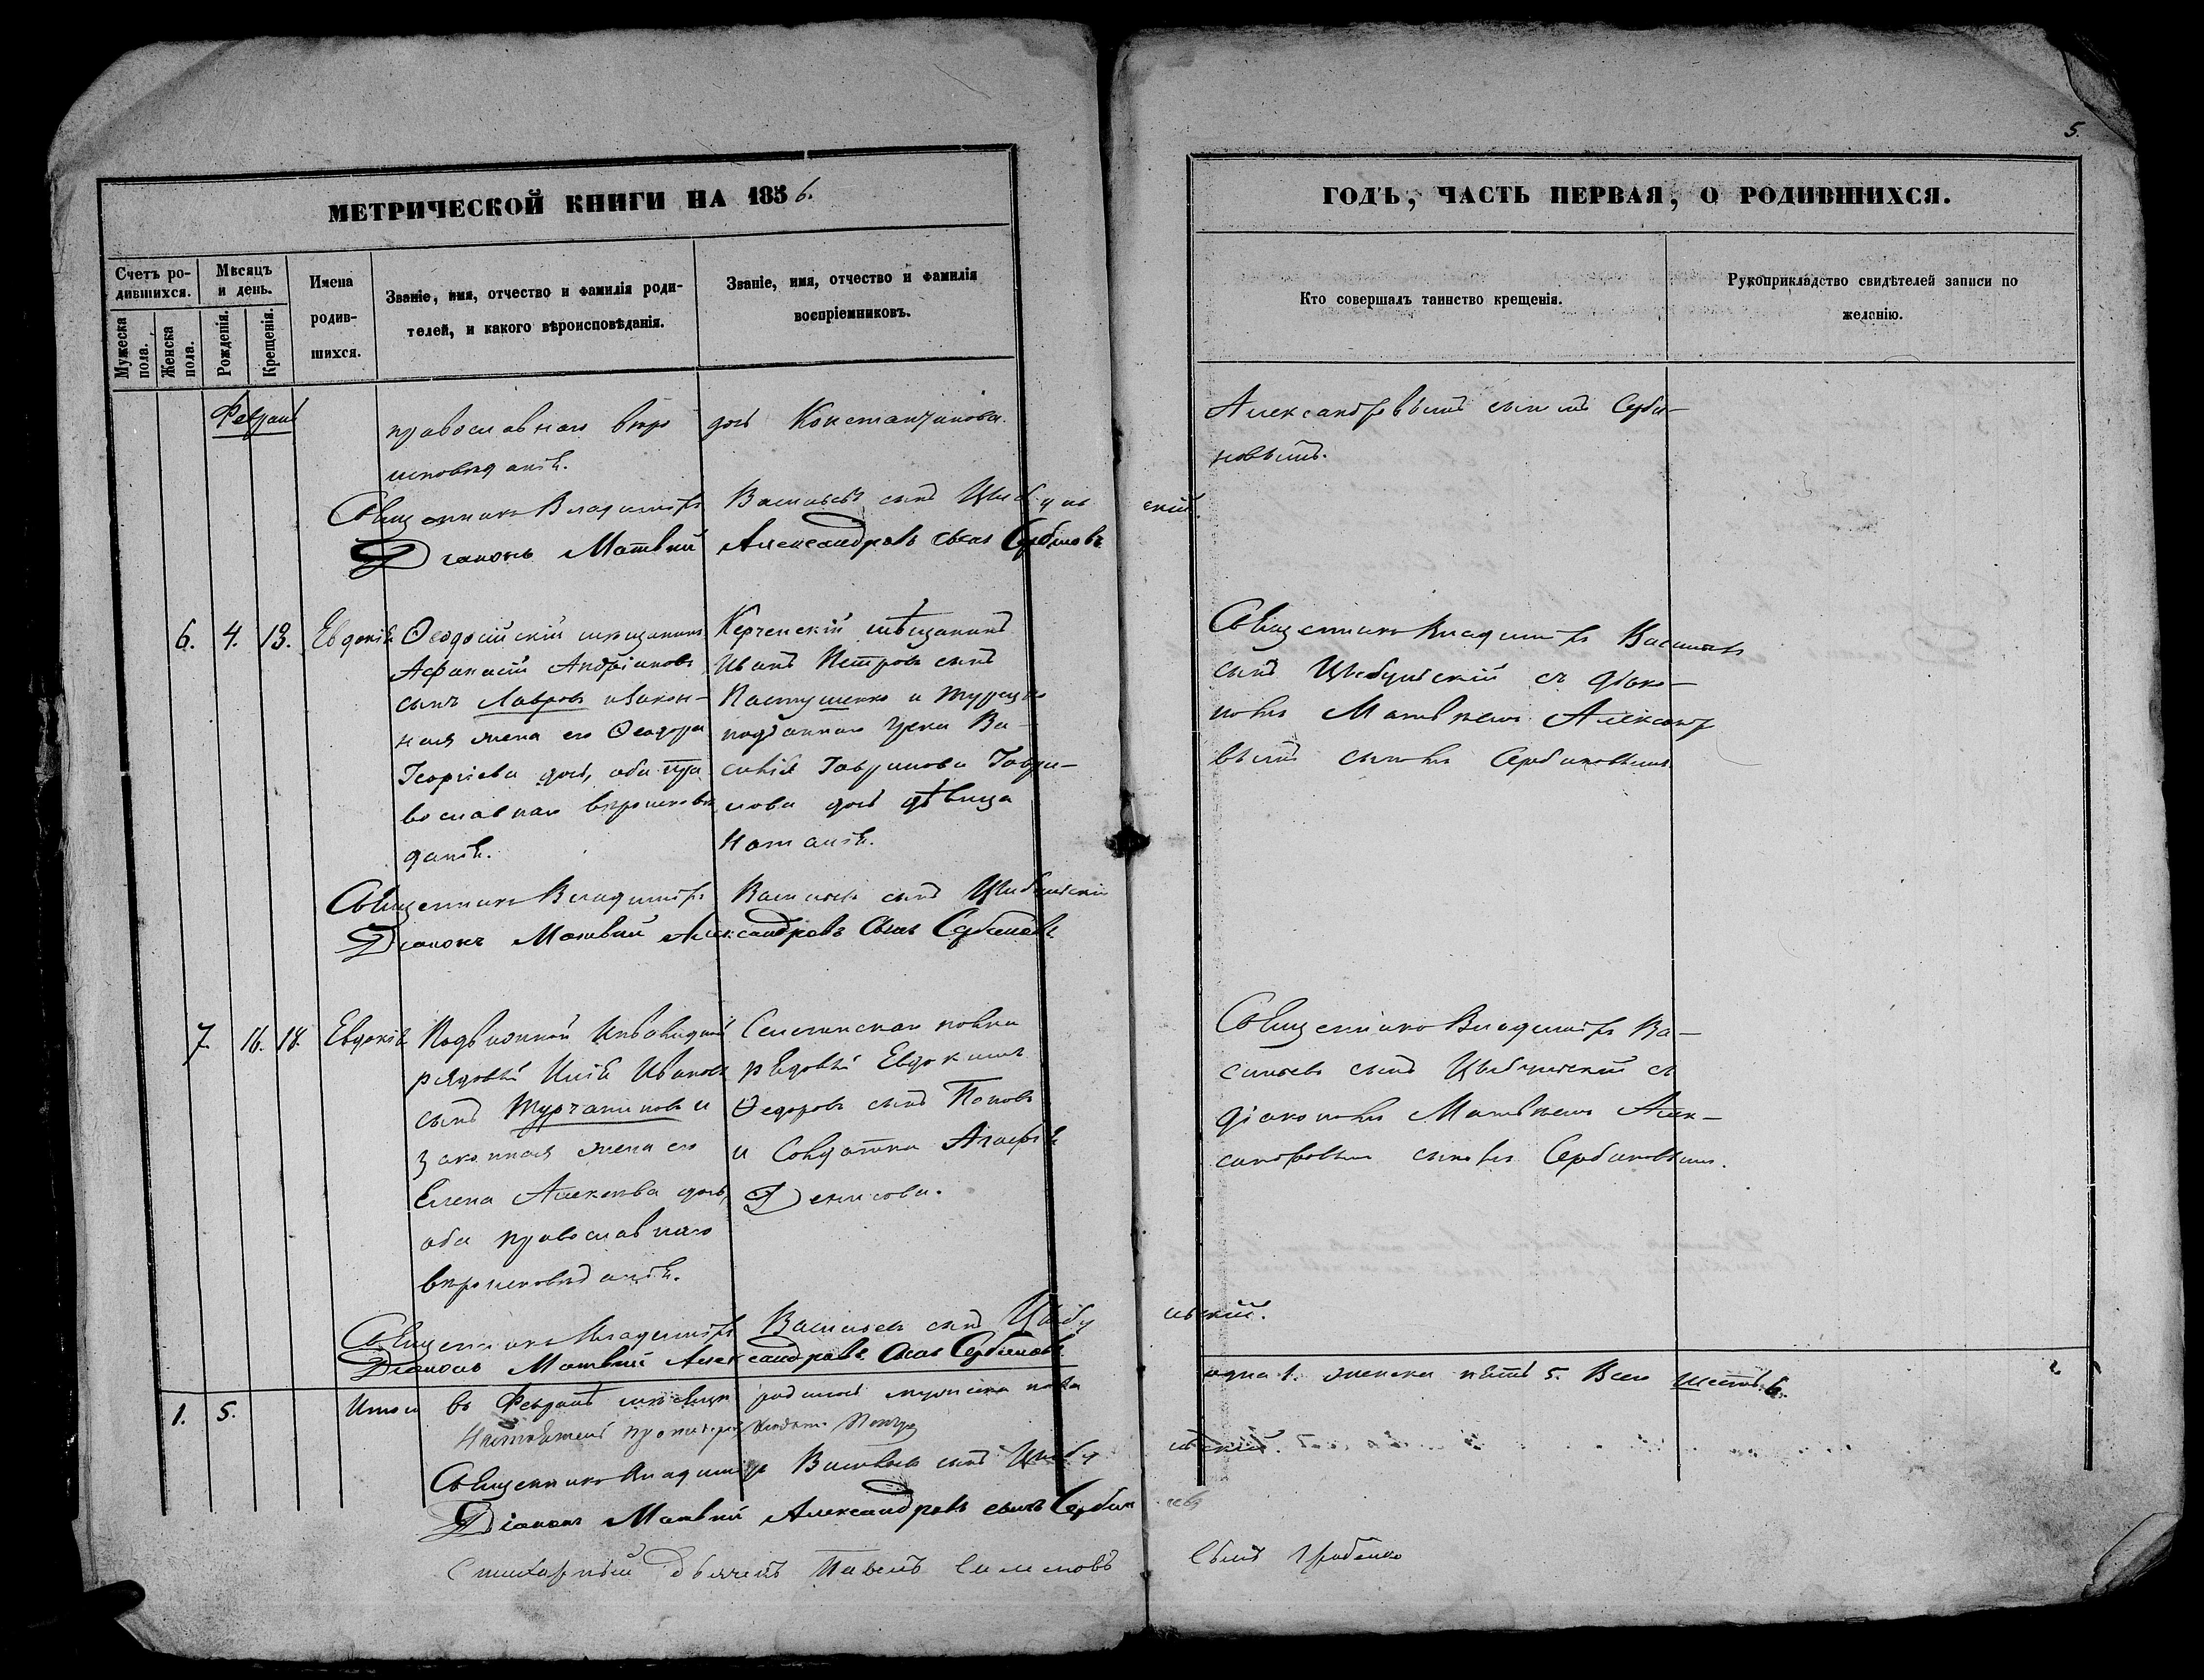 5
МЕТРИЧЕСКОЙ КНИГИ НА 1856.
ГОДЪ, ЧАСТЬ ПЕРВАЯ, О РОДИВШИХСЯ.
Счетъ ро-
дившихся.
Мужеска пола.
Женска пола.
Мѣсяцъ
и день.
Рожденія.
Крещенія.
Имена
родив-
шихся.
Званіе, имя, отчество и фамилія роди-
телей, и какого вѣроисповѣданія.
Званіе, имя, отчество и фамилія
воспріемниковъ.
Кто совершалъ таинство крещенія.
Рукоприкладство свидѣтелей записи по
желанію.
Февраль
православнаго вѣро
исповѣданія.
дочь Константинова.
Александровымъ сыномъ Серби-
новымъ.
Священникъ Владиміръ Васильевъ сынъ Цыбульскій.
Діаконъ Матвій Александровъ сынъ Сербиновъ
6. 4. 13. Евдокія
Ѳеодосійскій мѣщанинъ
Афанасій Андріановъ
сынъ Лавровъ и закон-
ная жена его Ѳеодора
Георгіева дочь, оба пра
вославнаго вѣроисповѣ
данія.
Керченскій мѣщанинъ
Иванъ Петровъ сынъ
Пастушенко и турецко
подданнаго грека Ва-
силія Гаврилова Гаври-
лова дочь дѣвица
Наталія.
Священникъ Владиміръ Васильевъ
сынъ Цыбульскій съ діако-
номъ Матвѣемъ Александро
вымъ сыномъ Сербиновымъ.
Священникъ Владиміръ Васильевъ сынъ Цыбульскій
Діаконъ Матвій Александровъ Сынъ Сербиновъ
7. 16. 18. Евдокія
Подвижной Инвалидной
рядовый Илія Ивановъ
сынъ Турчаниновъ и
законная жена его
Елена Алексѣева дочь,
оба православнаго
вѣроисповѣданія.
рядовый Евдокимъ
Ѳедоровъ сынъ Поповъ
и Солдатка Агафія
Денисова.
Священникъ Владиміръ Ва-
сильевъ сынъ Цыбульскій съ
діакономъ Матвѣемъ Алек-
сандровымъ сыномъ Сербиновымъ.
Священникъ Владиміръ Васильевъ сынъ Цыбульскій.
Діаконъ Матвій Александровъ Сынъ Сербиновъ
1. 5. Итого въ Февралѣ мѣсяцѣ родилось мужеска пола одна 1. женска пять 5. Всего шесть 6.
Настоятель
Священникъ Владиміръ Васильевъ сынъ Цыбульскій.
Діаконъ Матвій Александровъ сынъ Сербиновъ
Стихарный Дьячекъ Павелъ
Сынъ